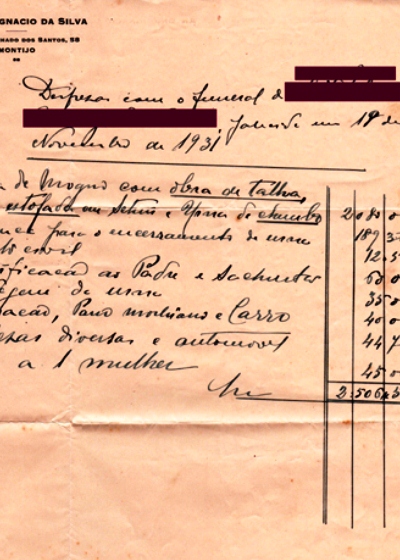 GNACIO DA SILVA
NADO DOS SANTOS, 58
MONTIJO
Despezas com o funeral d
falecido em 19 de
Novembro de 1931
de Mogno com obra de talha,
estofada em Setim e Urna de chumbo 2.080
para o encerramento da urna 189 3
civil 12.5
ificação ao Padre e Sachristão 60
gem da urna 35 0
ação, Pano mortuario e Carro 40 0
ezas diversas e automovel 44 7
a 1 mulher 45 0
2.506.5